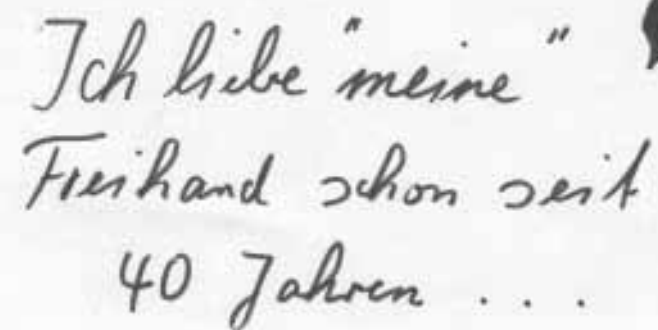 Ich liebe "meine"
Freihand schon seit
40 Jahren ...